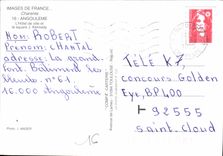 IMAGES DE FRANCE...
Charente
16 - ANGOULEME
L'Hôtel de ville et
le square J. Kennedy
Nom: ROBERT
Prénom: CHANTAL
adresse: La grand
Font Bâtiment les
N° 61
16.000 Angoulême
Photo: J.
TÉLÉ K7,
concours Golden
Eye, BP 400
92555
Saint-Cloud
16